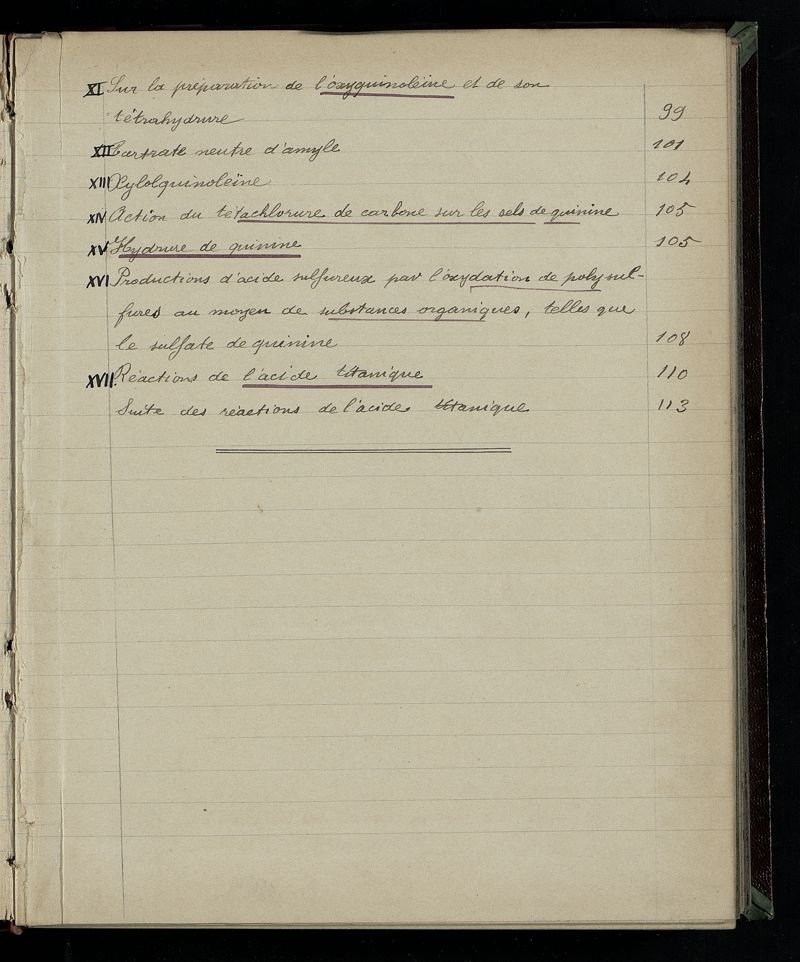 XI Sur la préparation de l'oxyquinoléine et de son
tétrahydrure 99
XII Tartrate neutre d'amyle 101
XIII Xylolquinoléine 104
XIV Action du tétachlorure de carbone sur les sels de quinine 105
XV Hydrure de quinine 105
XVI Productions d'acide sulfureux par l'oxydation de polysul-
fures au moyen de substances organiques, telles que
le sulfate de quinine 108
XVII Réactions de l'acide titanique 110
Suite des réactions de l'acide titanique 113